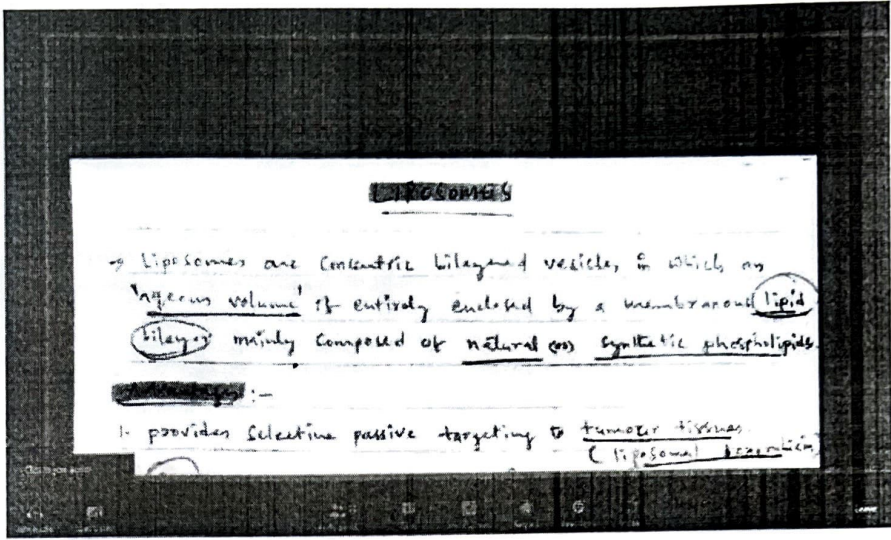 LIPOSOMES
→ Liposomes are Concentric bilayered vesicles, in which an
'aqeous volume' is entirely enclosed by a membranous lipid
bilayer mainly Composed of natural (or) synthetic phospholipids.
Advantages :-
1. provides Selective passive targeting to tumour tissues.
( liposomal
Leave